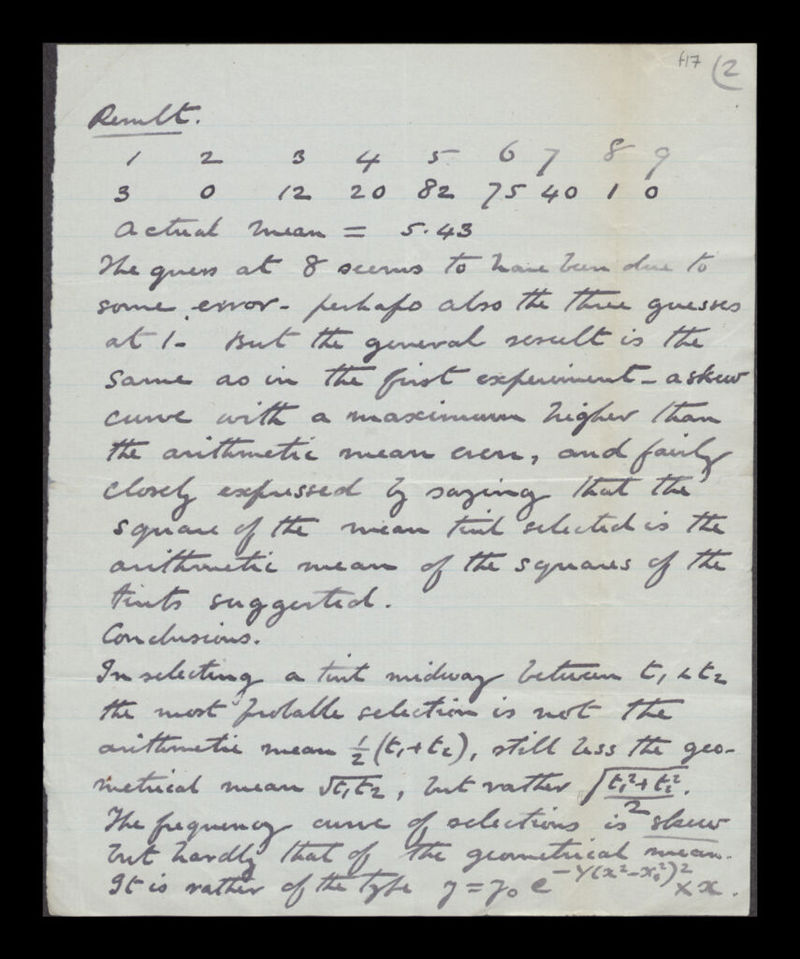 f17 (2
Result.
1 2 3 4 5 6 7 8 9
3 0 12 20 82 75 40 1 0
Actual mean = 5.43
The guess at 8 seems to have been due to
some error - perhaps also the three guesses
at 1. But the general result is the
same as in the first experiment - a skew
curve with a maximum higher than
the arithmetic mean even, and fairly
closely expressed by saying that the
square of the mean tint selected is the
arithmetic mean of the squares of the
tints suggested.
Conclusions.
In selecting a tint midway between t₁ & t₂
the most probable selection is not the
arithmetic mean ½(t₁+t₂), still less the geo-
metrical mean √t₁t₂, but rather √(t₁²+t₂²)/2.
The frequency curve of selections is skew
but hardly that of the geometrical mean.
It is rather of the type y = y₀ e^-γ(x²-x₀²)² × x.